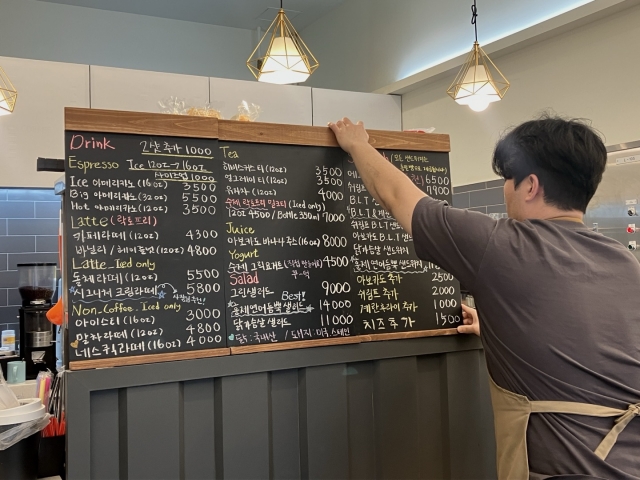 Drink 2샷 추가 1000
Espresso Ice 12oz→16oz
사이즈업 1000
Ice 아메리카노 (16oz) 3500
Big 아메리카노 (32oz) 5500
Hot 아메리카노 (12oz) 3500
Latte (락토프리)
카페라떼 (12oz) 4300
바닐라 / 헤이즐넛 (12oz) 4800
Latte Iced only
돌체라떼 (16oz) 5500
시그니처 크림라떼 5800
Non-Coffee. Iced only
아이스티 (16oz) 3000
말차라떼 (12oz) 4800
네스퀵라떼 (16oz) 4000
Tea
히비스커스 티 (12oz) 3500
얼그레이 티 (12oz) 3500
유자차 (12oz) 4000
수제 락토프리 밀크티 (Iced only)
12oz 4500 / Bottle 350ml 7000
Juice
아보카도 바나나 주스 (16oz) 8000
Yogurt
수제 그릭요거트 4500
Salad
그린샐러드 9000
Best!
훈제연어듬뿍 샐러드 14000
닭가슴살 샐러드 11000
닭: 국내산 / 돼지: 미국, 스페인
6500
7900
B.L.T
B.L.T
쉬림프 B.L.T
아보카도 B.L.T
닭가슴살 샌드위치
훈제연어듬뿍 샌드위치
아보카도 추가 2500
쉬림프 추가 2000
계란후라이 추가 1000
치즈 추가 1500